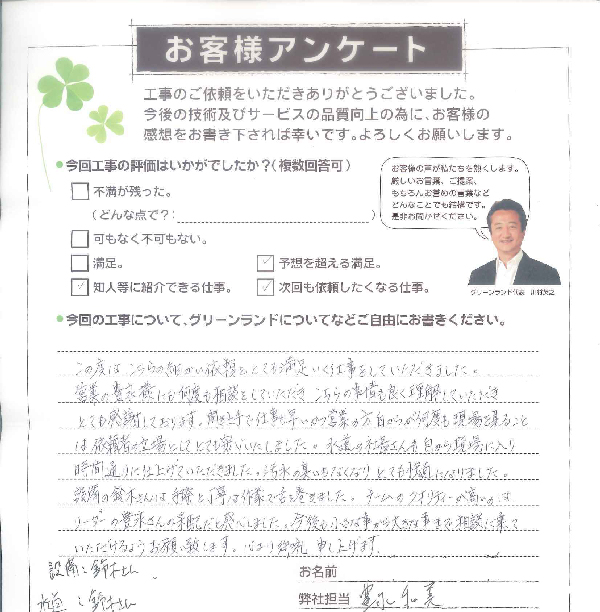 お客様アンケート
工事のご依頼をいただきありがとうございました。
今後の技術及びサービスの品質向上の為に、お客様の
感想をお書き下されば幸いです。よろしくお願いします。
今回工事の評価はいかがでしたか?(複数回答可)
不満が残った。
(どんな点で?: )
可もなく不可もない。
満足。
予想を超える満足。
知人等に紹介できる仕事。
次回も依頼したくなる仕事。
お客様の声が私たちを熱くします。
厳しいお言葉、ご提案、
もちろんお誉めの言葉など
どんなことでも結構です。
是非お聞かせください。
グリーンランド代表
今回の工事について、グリーンランドについてなどご自由にお書きください。
この度はこちらの細かい依頼をとても満足いく仕事をしていただきました。
営業の 様にも何度も相談をしていただき こちらの事情も良く理解していただき
とても感謝しております。聞き上手で仕事も早いかつ営業の方自らが何度も現場を見ること
は依頼者の立場としてとても安心いたしました。水道の さんも自ら現場に入り
時間通りに仕上げていただきました。汚水の臭いもなくなりとても になりました。
設備の鈴木さんは 丁寧な作業で舌を巻きました。チームのクオリティーが高いのは
リーダーの さんの采配だと感じました。今後も小さな事から大きな事まで相談に乗って
いただけるようお願い致します。心より御礼申し上げます。
設備:鈴木さん
水道:鈴木さん
お名前
弊社担当